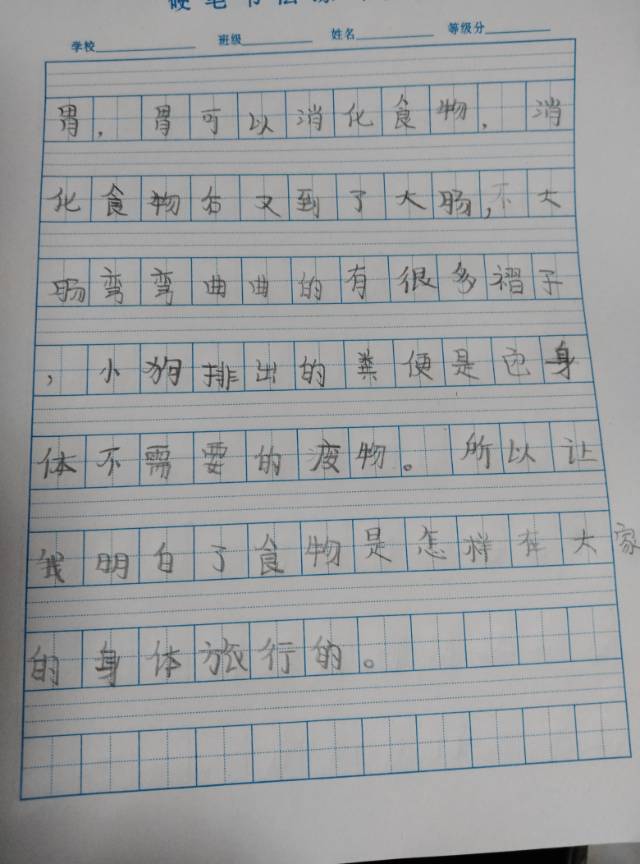 学校 班级 姓名 等级分
胃，胃可以消化食物，消
化食物后又到了大肠，不大
肠弯弯曲曲的有很多褶子
，小狗排出的粪便是它身
体不需要的废物。所以让
我明白了食物是怎样在大家
的身体旅行的。